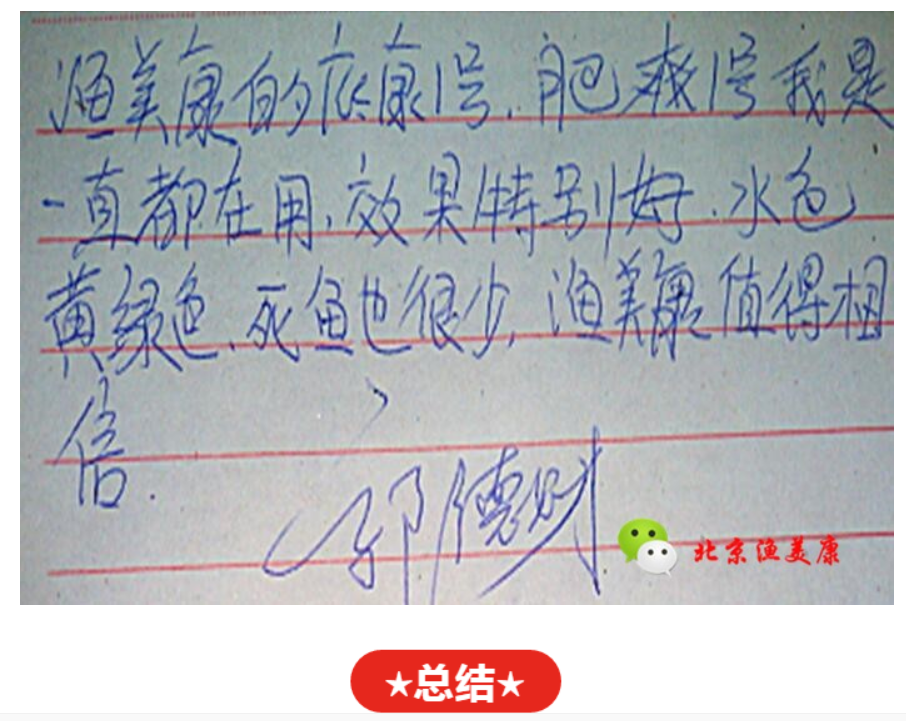 渔美康的底康1号、肥爽1号我是
一直都在用、效果特别好、水色
黄绿色、死鱼也很少,渔美康值得相
信.
郭德财
北京渔美康
★总结★